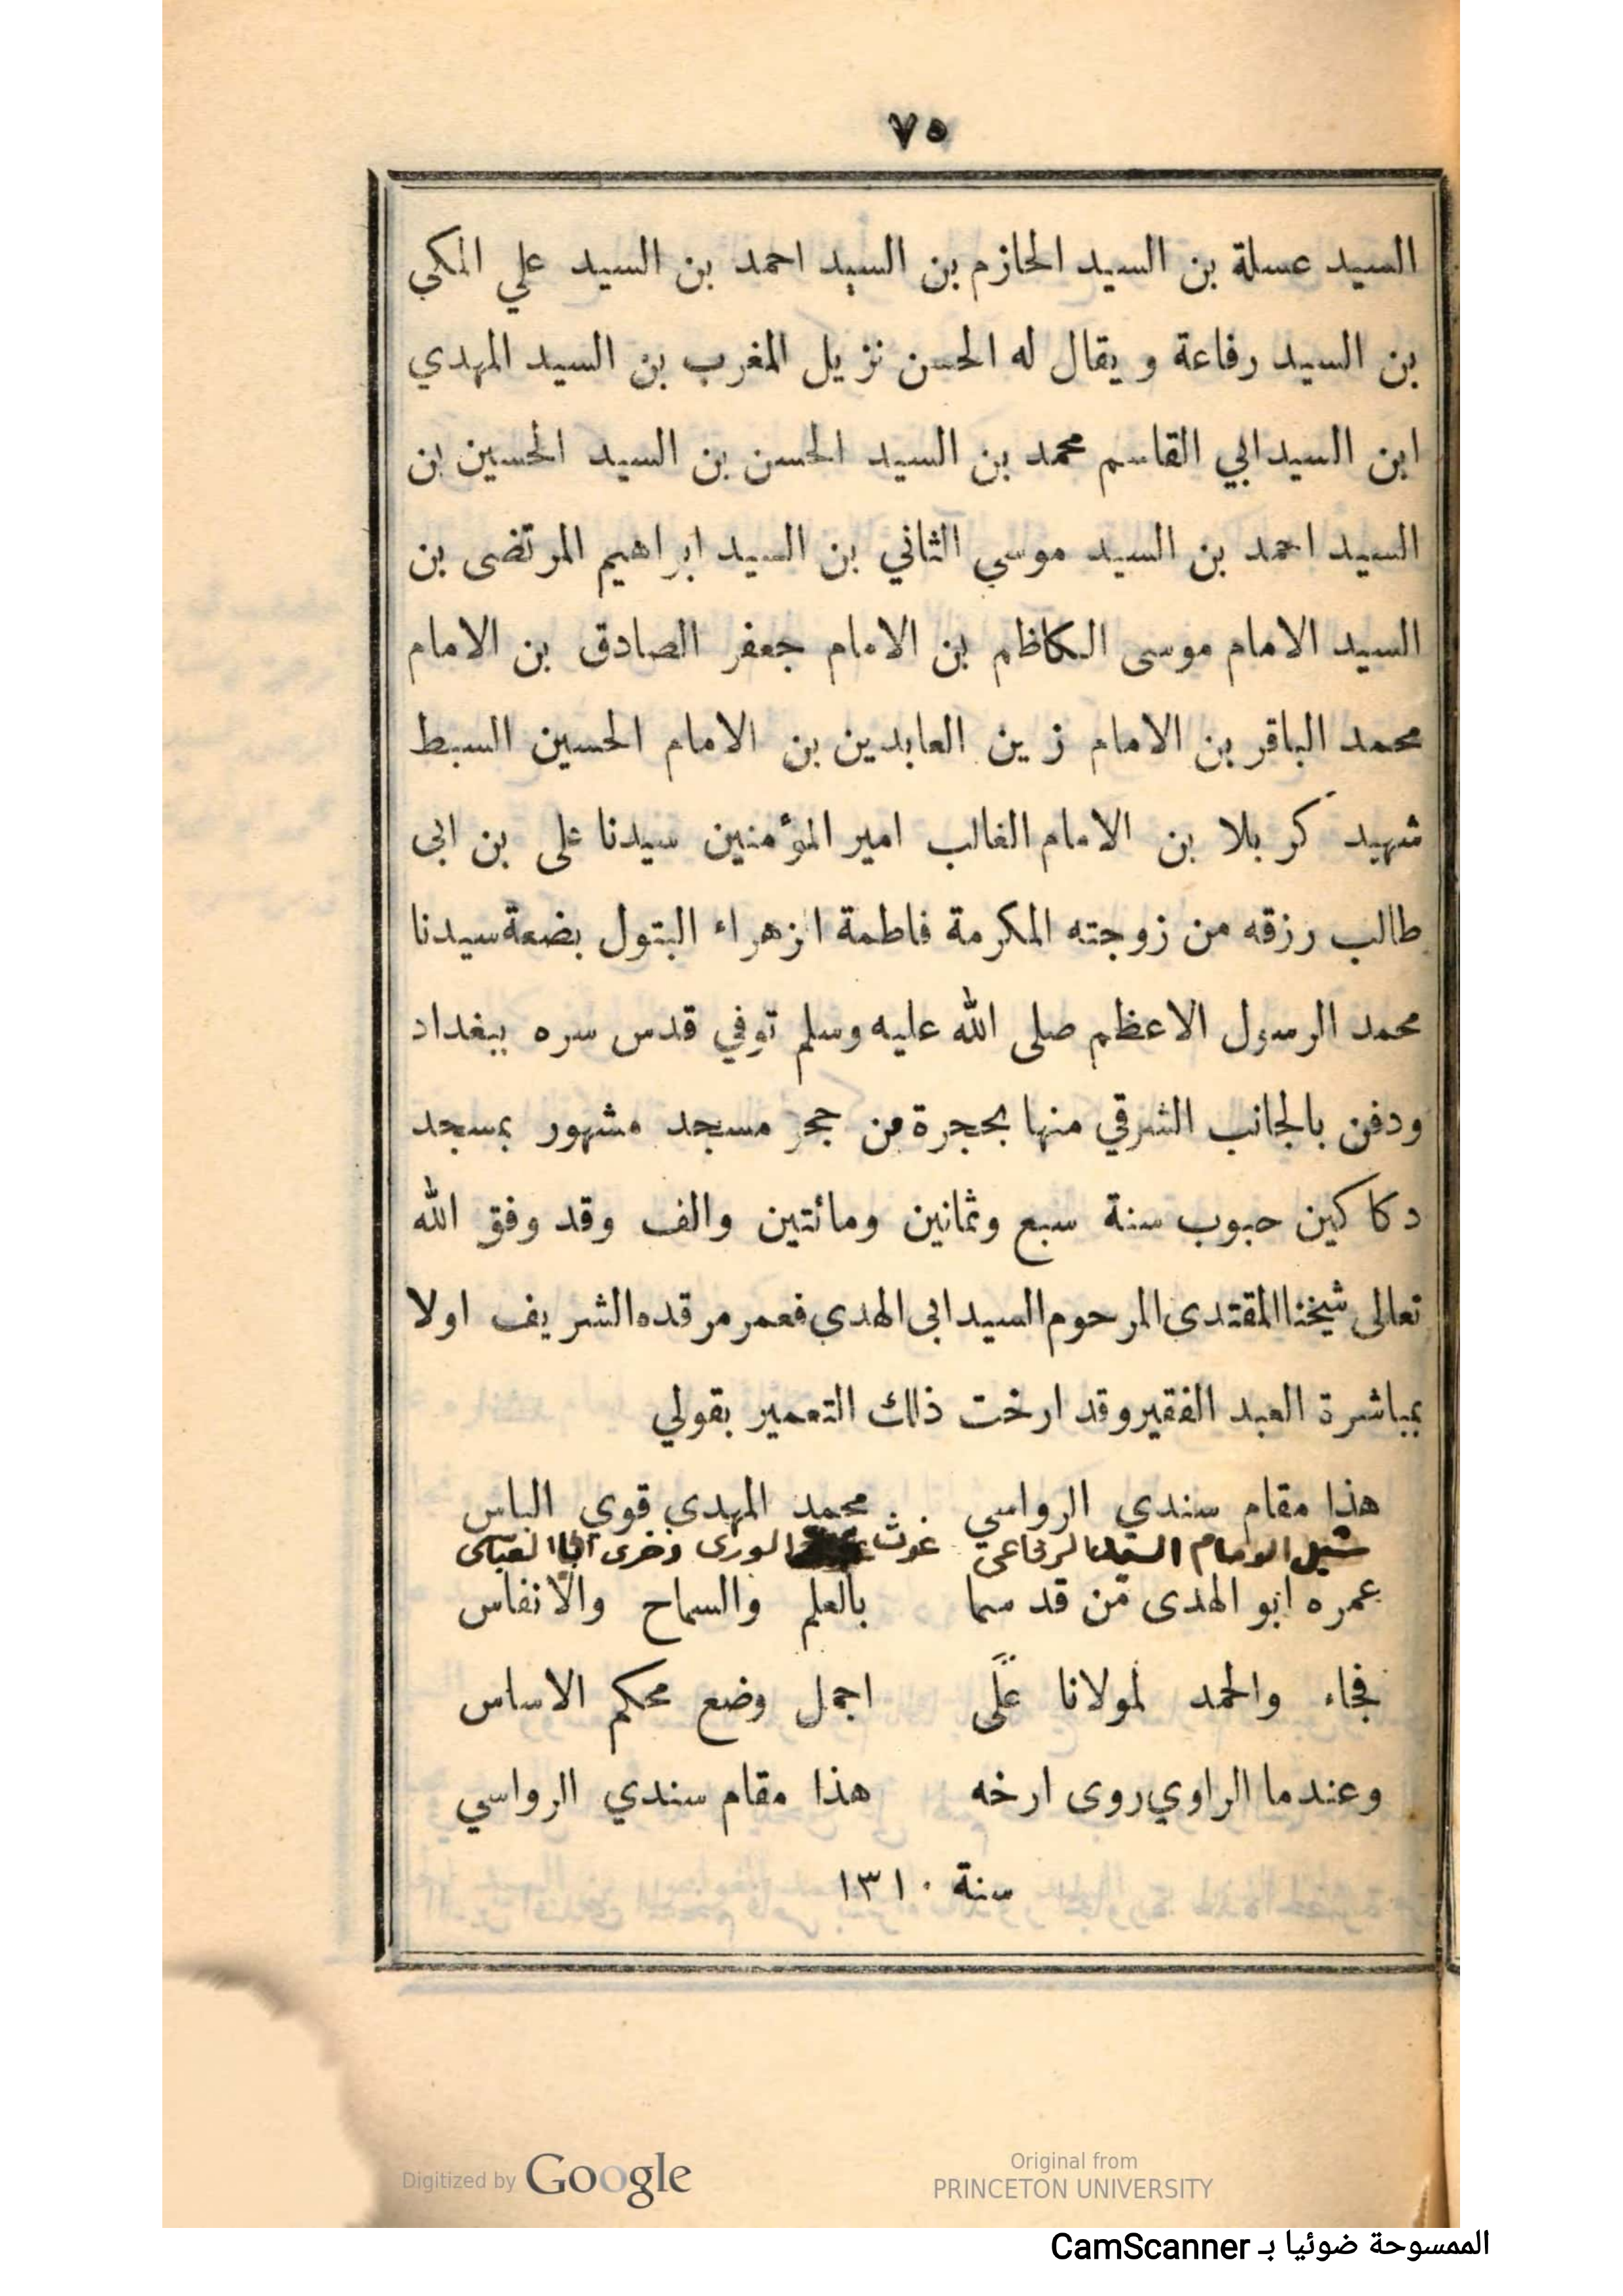 ٧٥
السيد عسلة بن السيد الحازم بن السيد احمد بن السيد علي المكي
بن السيد رفاعة ويقال له الحسن نزيل المغرب بن السيد المهدي
ابن السيد ابي القاسم محمد بن السيد الحسن بن السيد الحسين بن
السيد احمد بن السيد موسي الثاني بن السيد ابراهيم المرتضى بن
السيد الامام موسى الكاظم بن الامام جعفر الصادق بن الامام
محمد الباقر بن الامام زين العابدين بن الامام الحسين السبط
شهيد كربلا بن الامام الغالب امير المؤمنين سيدنا على بن ابى
طالب رزقه من زوجته المكرمة فاطمة الزهراء البتول بضعة سيدنا
محمد الرسول الاعظم صلى الله عليه وسلم توفي قدس سره ببغداد
ودفن بالجانب الشرقي منها بحجرة من حجر مسجد مشهور بمسجد
دكاكين حبوب سنة سبع وثمانين ومائتين والف وقد وفق الله
تعالى شيخنا المقتدى المرحوم السيد ابى الهدى فعمر مرقده الشريف اولا
بمباشرة العبد الفقير وقد ارخت ذلك التعمير بقولي
هذا مقام سندي الرواسي محمد المهدي قوي الباس
شبل الامام السيد الرفاعى غوث الورى وفخرى العباسى
عمره ابو الهدى من قد سما بالعلم والسماح والانفاس
فجاء والحمد لمولانا على اجمل وضع محكم الاساس
وعندما الراوي روى ارخه هذا مقام سندي الرواسي
سنة ١٣١٠
Digitized by Google
Original from
PRINCETON UNIVERSITY
الممسوحة ضوئيا بـ CamScanner